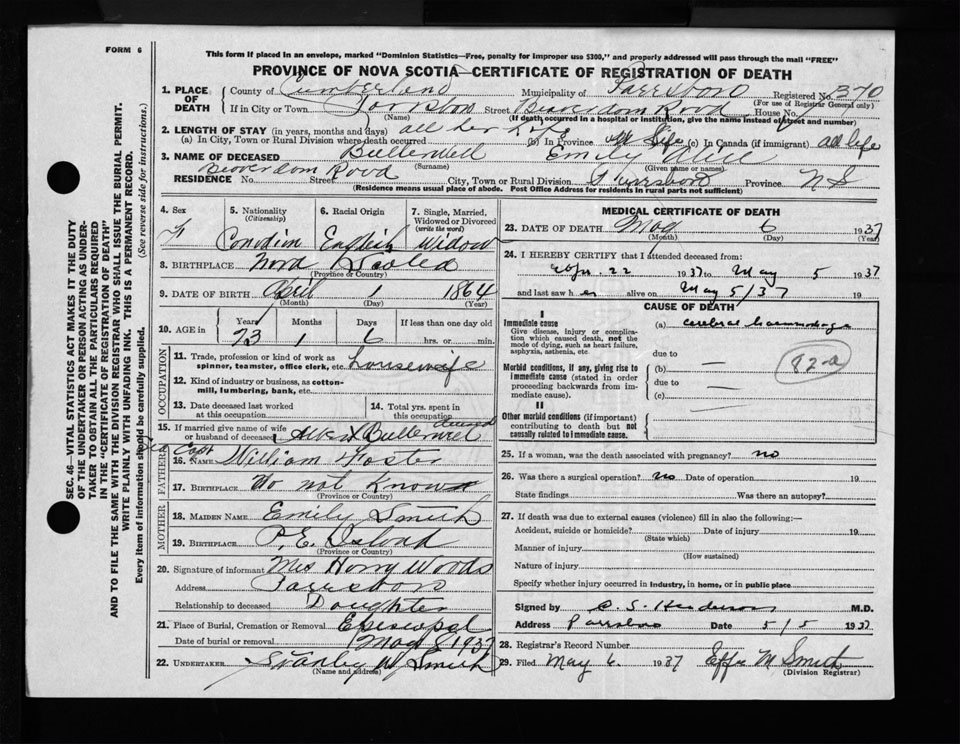 FORM 6
This form if placed in an envelope, marked "Dominion Statistics—Free, penalty for improper use $300," and properly addressed will pass through the mail "FREE"
PROVINCE OF NOVA SCOTIA—CERTIFICATE OF REGISTRATION OF DEATH
SEC. 46—VITAL STATISTICS ACT MAKES IT THE DUTY
OF THE UNDERTAKER OR PERSON ACTING AS UNDER-
TAKER TO OBTAIN ALL THE PARTICULARS REQUIRED
IN THE "CERTIFICATE OF REGISTRATION OF DEATH"
AND TO FILE THE SAME WITH THE DIVISION REGISTRAR WHO SHALL ISSUE THE BURIAL PERMIT.
WRITE PLAINLY WITH UNFADING INK. THIS IS A PERMANENT RECORD.
Every item of information should be carefully supplied. (See reverse side for instructions.)
1. PLACE OF DEATH County of Cumberland Municipality of Parrsboro Registered No. 370
(For use of Registrar General only)
If in City or Town Parrsboro Street Beaverdom Rood House No.
(Name) (If death occurred in a hospital or institution, give the name instead of street and number)
2. LENGTH OF STAY (in years, months and days) all her Life
(a) In City, Town or Rural Division where death occurred (b) In Province Life (c) In Canada (if immigrant) all life
3. NAME OF DECEASED Bullerwell Emily
(Surname) (Given name or names)
Beaverdom Rood
RESIDENCE No. Street City, Town or Rural Division Parrsboro Province N S
(Residence means usual place of abode. Post Office Address for residents in rural parts not sufficient)
4. Sex F
5. Nationality (Citizenship) Conodion
6. Racial Origin English
7. Single, Married, Widowed or Divorced (write the word) Widow
8. BIRTHPLACE Nova Scotia
(Province or Country)
9. DATE OF BIRTH April 1 1864
(Month) (Day) (Year)
10. AGE in Years 73 Months 1 Days 6 If less than one day old hrs. or min.
OCCUPATION
11. Trade, profession or kind of work as spinner, teamster, office clerk, etc. housewife
12. Kind of industry or business, as cotton-mill, lumbering, bank, etc.
13. Date deceased last worked at this occupation
14. Total yrs. spent in this occupation
15. If married give name of wife or husband of deceased Bullerwel
FATHER
16. NAME Capt William Foster
17. BIRTHPLACE do not know
(Province or Country)
MOTHER
18. MAIDEN NAME Emily Smith
19. BIRTHPLACE P.E. Island
(Province or Country)
20. Signature of informant Mrs Horry Woods
Address Parrsboro
Relationship to deceased Doughter
21. Place of Burial, Cremation or Removal Episcopal
Date of burial or removal May 8 1937
22. UNDERTAKER Stanley W. Smith
(Name and address)
MEDICAL CERTIFICATE OF DEATH
23. DATE OF DEATH May 6 1937
(Month) (Day) (Year)
24. I HEREBY CERTIFY that I attended deceased from:
Apr. 22 1937 to May 5 1937
and last saw her alive on May 5/37 19
CAUSE OF DEATH
I
Immediate cause (a) cerebral haemorrhage
Give disease, injury or complication which caused death, not the mode of dying, such as heart failure, asphyxia, asthenia, etc.
due to
82-a
Morbid conditions, if any, giving rise to immediate cause (stated in order proceeding backwards from immediate cause). (b) —
due to —
(c)
II
Other morbid conditions (if important) contributing to death but not causally related to immediate cause.
25. If a woman, was the death associated with pregnancy? no
26. Was there a surgical operation? no Date of operation 19
State findings Was there an autopsy?
27. If death was due to external causes (violence) fill in also the following:—
Accident, suicide or homicide? Date of injury 19
(State which)
Manner of injury
(How sustained)
Nature of injury
Specify whether injury occurred in industry, in home, or in public place
Signed by C. S. Henderson M.D.
Address Parrsboro Date 5/5 1937
28. Registrar's Record Number
29. Filed May 6. 1937 Effie M Smith
(Division Registrar)